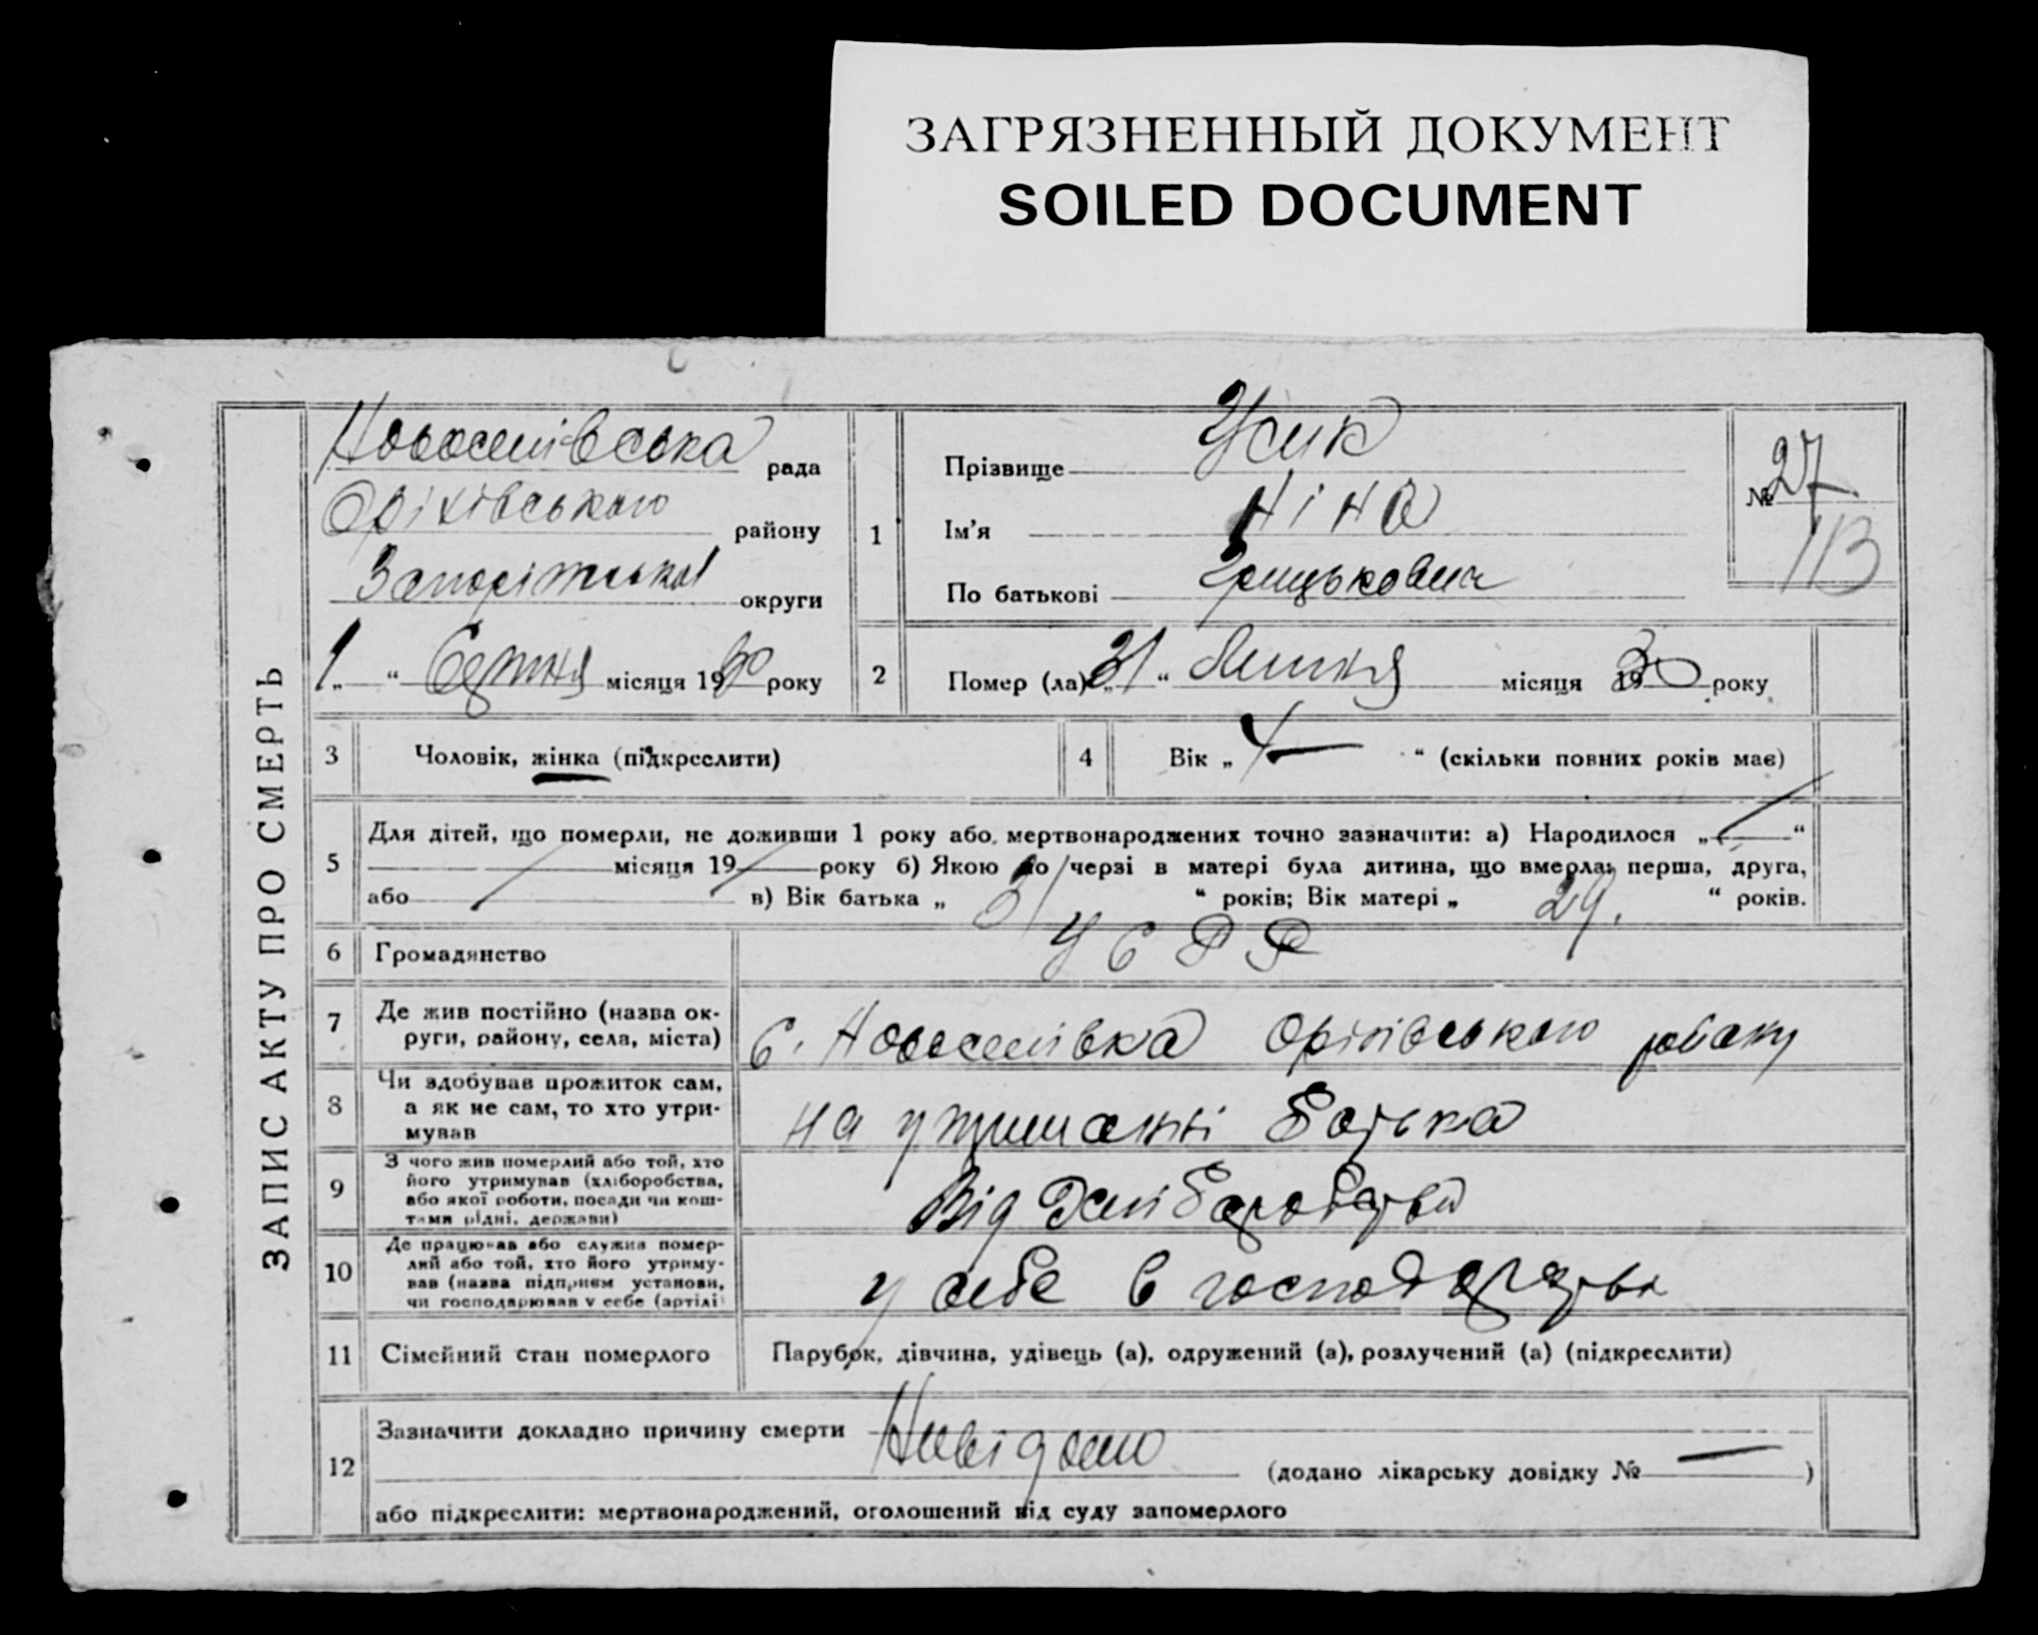 ЗАГРЯЗНЕННЫЙ ДОКУМЕНТ
SOILED DOCUMENT
ЗАПИС АКТУ ПРО СМЕРТЬ
рада
Оріхівського району
Запоріжської округи
1 „ “ Серпня місяця 1930 року
1
Прізвище Усик
Ім'я Ніна
По батькові Грицьковна
№ 27
113
2
Помер (ла) „31“ Липня місяця 1930 року
3
Чоловік, жінка (підкреслити)
4
Вік „ 4 “ (скільки повних років має)
5
Для дітей, що померли, не доживши 1 року або мертвонароджених точно зазначити: а) Народилося „ — “
місяця 19 року б) Якою по черзі в матері була дитина, що вмерла: перша, друга,
або в) Вік батька „ 31 “ років; Вік матері „ 29. “ років.
6
Громадянство
УСРР
7
Де жив постійно (назва ок-
руги, району, села, міста)
с. Новоселівка Оріхівського району
8
Чи здобував прожиток сам,
а як не сам, то хто утри-
мував
на утриманні батька
9
З чого жив померлий або той, хто
його утримував (хліборобства,
або якої роботи, посади чи кош-
тами рідні, держави)
Від
10
Де працював або служив помер-
лий або той, хто його утриму-
вав (назва підприєм установи,
чи господарював у себе (артілі
у себе в господарстві
11
Сімейний стан померлого
Парубок, дівчина, удівець (а), одружений (а), розлучений (а) (підкреслити)
12
Зазначити докладно причину смерти
Невідомо
(додано лікарську довідку № — )
або підкреслити: мертвонароджений, оголошений від суду запомерлого